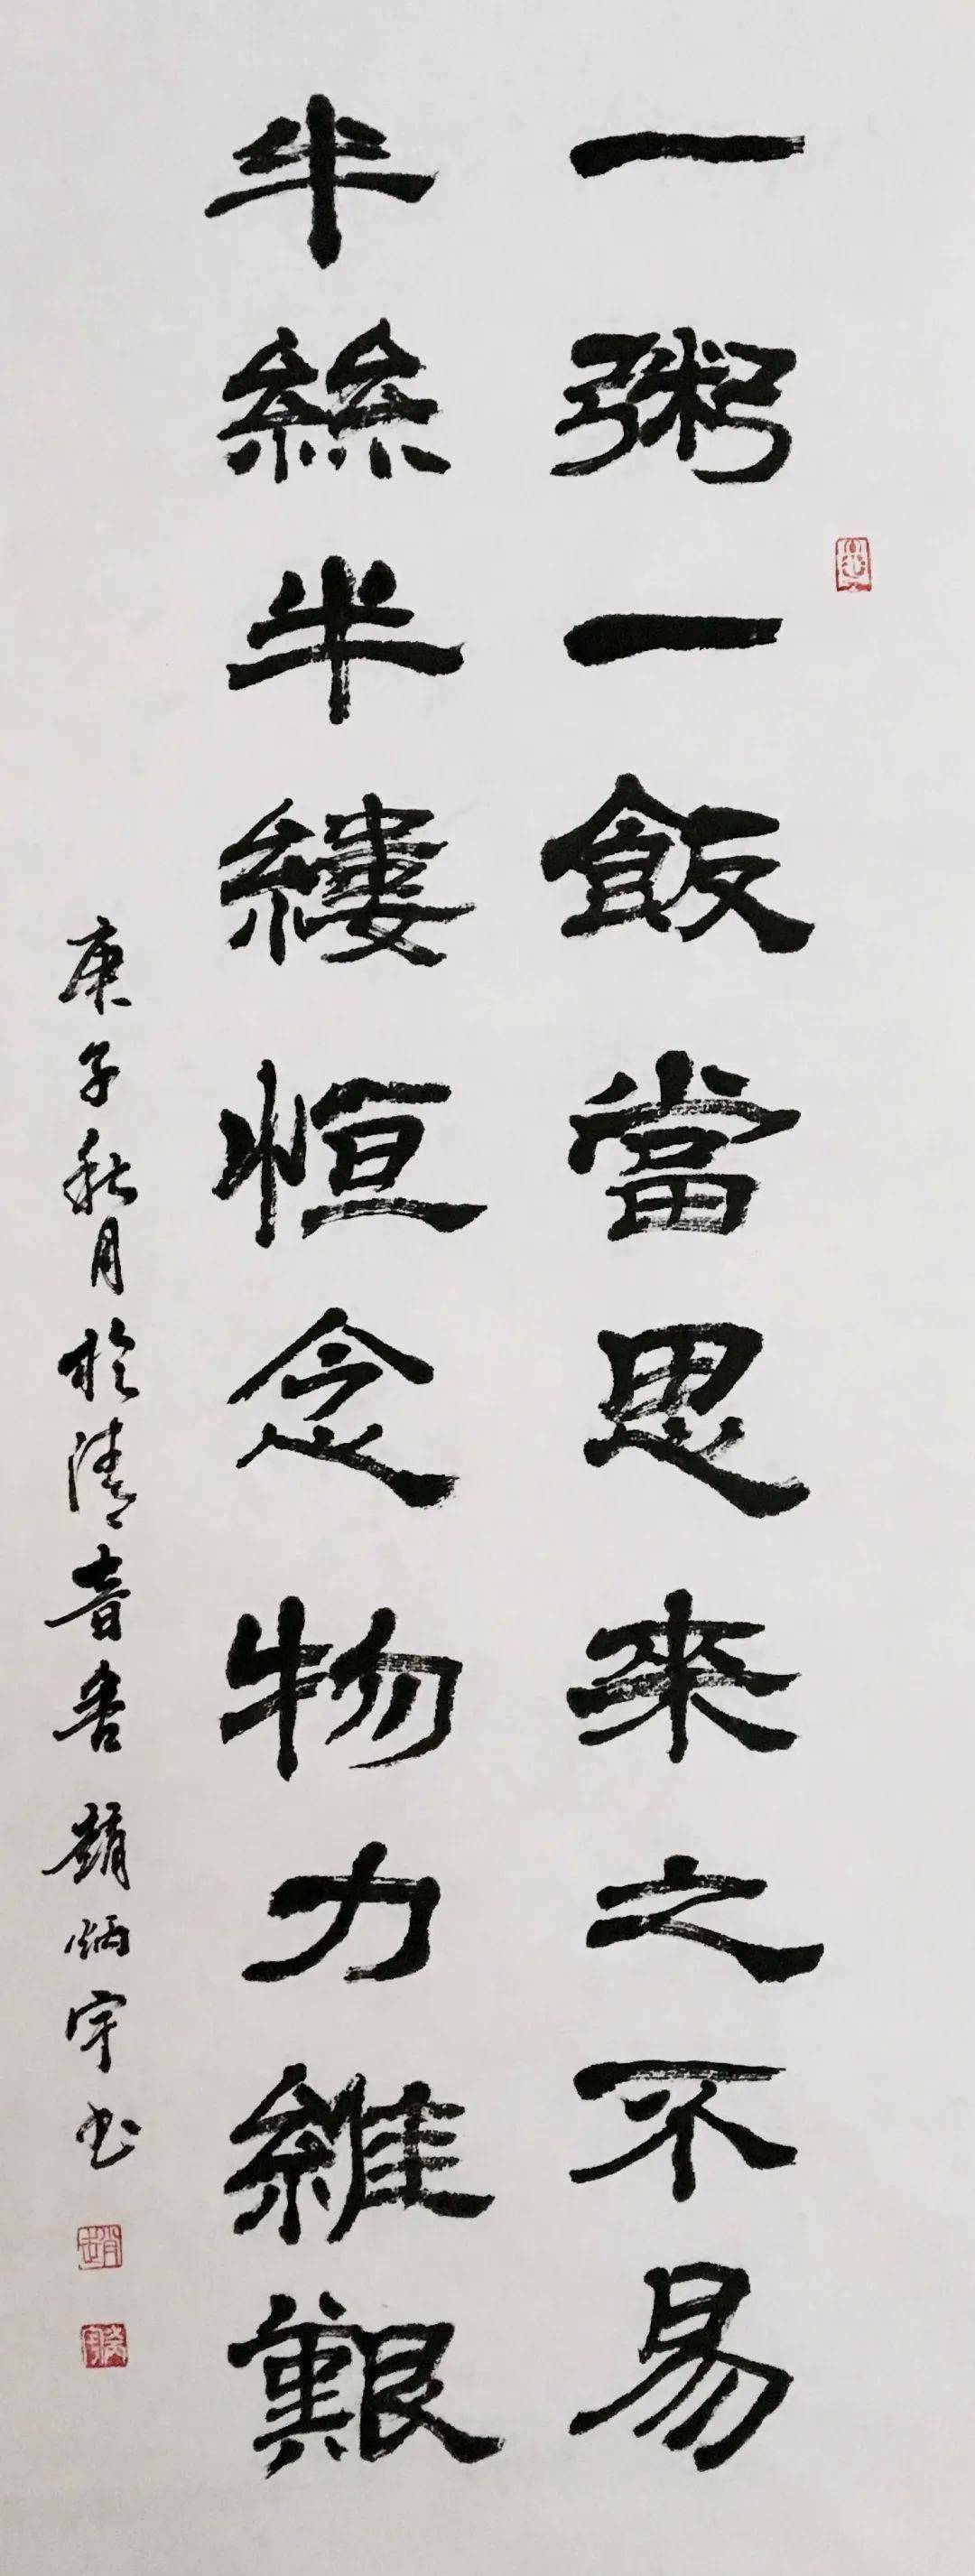 一粥一飯當思來之不易
半絲半縷恒念物力維艱
庚子秋月於清音舍趙炳宇书